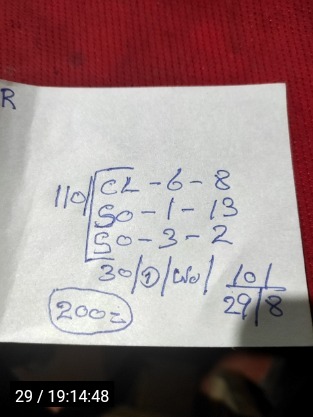 R
110/ CL - 6 - 8
50 - 1 - 13
50 - 3 - 2
30/1/
101
29/8
200=
29 / 19:14:48